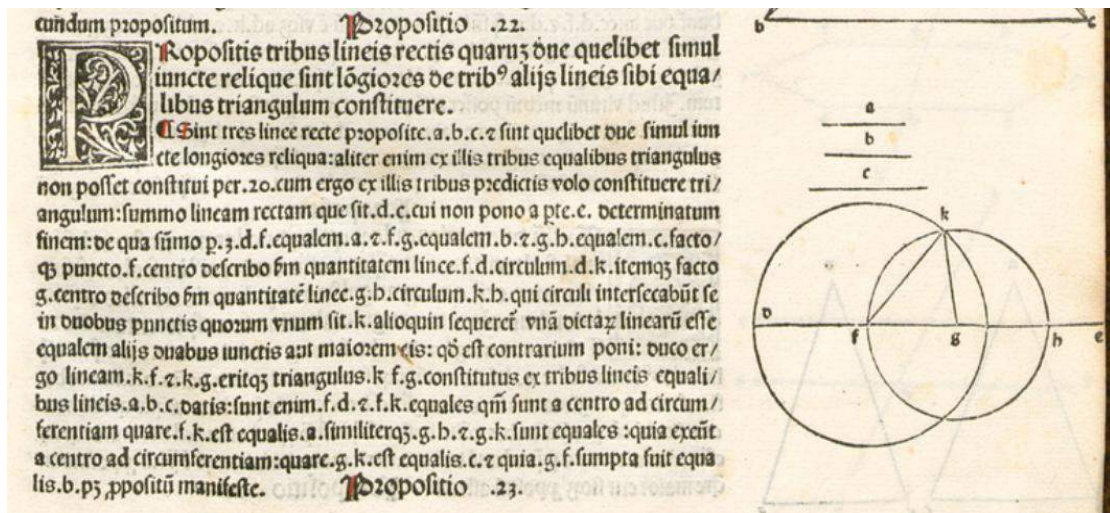 cundum propositum. Propositio .22.
PRopositis tribus lineis rectis quaruꝫ due quelibet simul
iuncte relique sint lõgiores de tribꝰ alijs lineis sibi equa/
libus triangulum constituere.
¶ Sint tres linee recte proposite.a.b.c.⁊ sint quelibet due simul iun
cte longiores reliqua:aliter enim ex illis tribus equalibus triangulus
non posset constitui per.20.cum ergo ex illis tribus predictis volo constituere tri/
angulum:summo lineam rectam que sit.d.e.cui non pono a pte.e. determinatum
finem:de qua sũmo p.3.d.f.equalem.a.⁊.f.g.equalem.b.⁊.g.h.equalem.c.facto/
qꝫ puncto.f.centro describo ẜm quantitatem linee.f.d.circulum.d.k.itemqꝫ facto
g.centro describo ẜm quantitatẽ linee.g.h.circulum.k.h.qui circuli intersecabũt se
in duobus punctis quorum vnum sit.k.alioquin sequeret᷑ vnã dictaꝝ linearũ esse
equalem alijs duabus iunctis aut maiorem eis: qđ est contrarium poni: duco er/
go lineam.k.f.⁊.k.g.eritqꝫ triangulus.k f.g.constitutus ex tribus lineis equali/
bus lineis.a.b.c.datis:sunt enim.f.d.⁊.f.k.equales qm̃ sunt a centro ad circum/
ferentiam quare.f.k.est equalis.a.similiterqꝫ.g.h.⁊.g.k.sunt equales :quia exeũt
a centro ad circumferentiam:quare.g.k.est equalis.c.⁊ quia.g.f.sumpta fuit equa
lis.b.pꝫ ꝓpositũ manifeste. Propositio .23.
b c
a
b
c
k
d f g h e